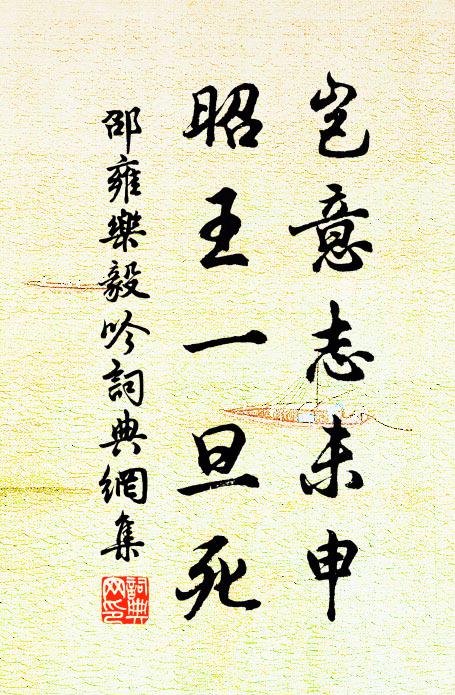 豈意志未申
昭王一旦死
邵雍樂毅吟詞典網集
詞典網印